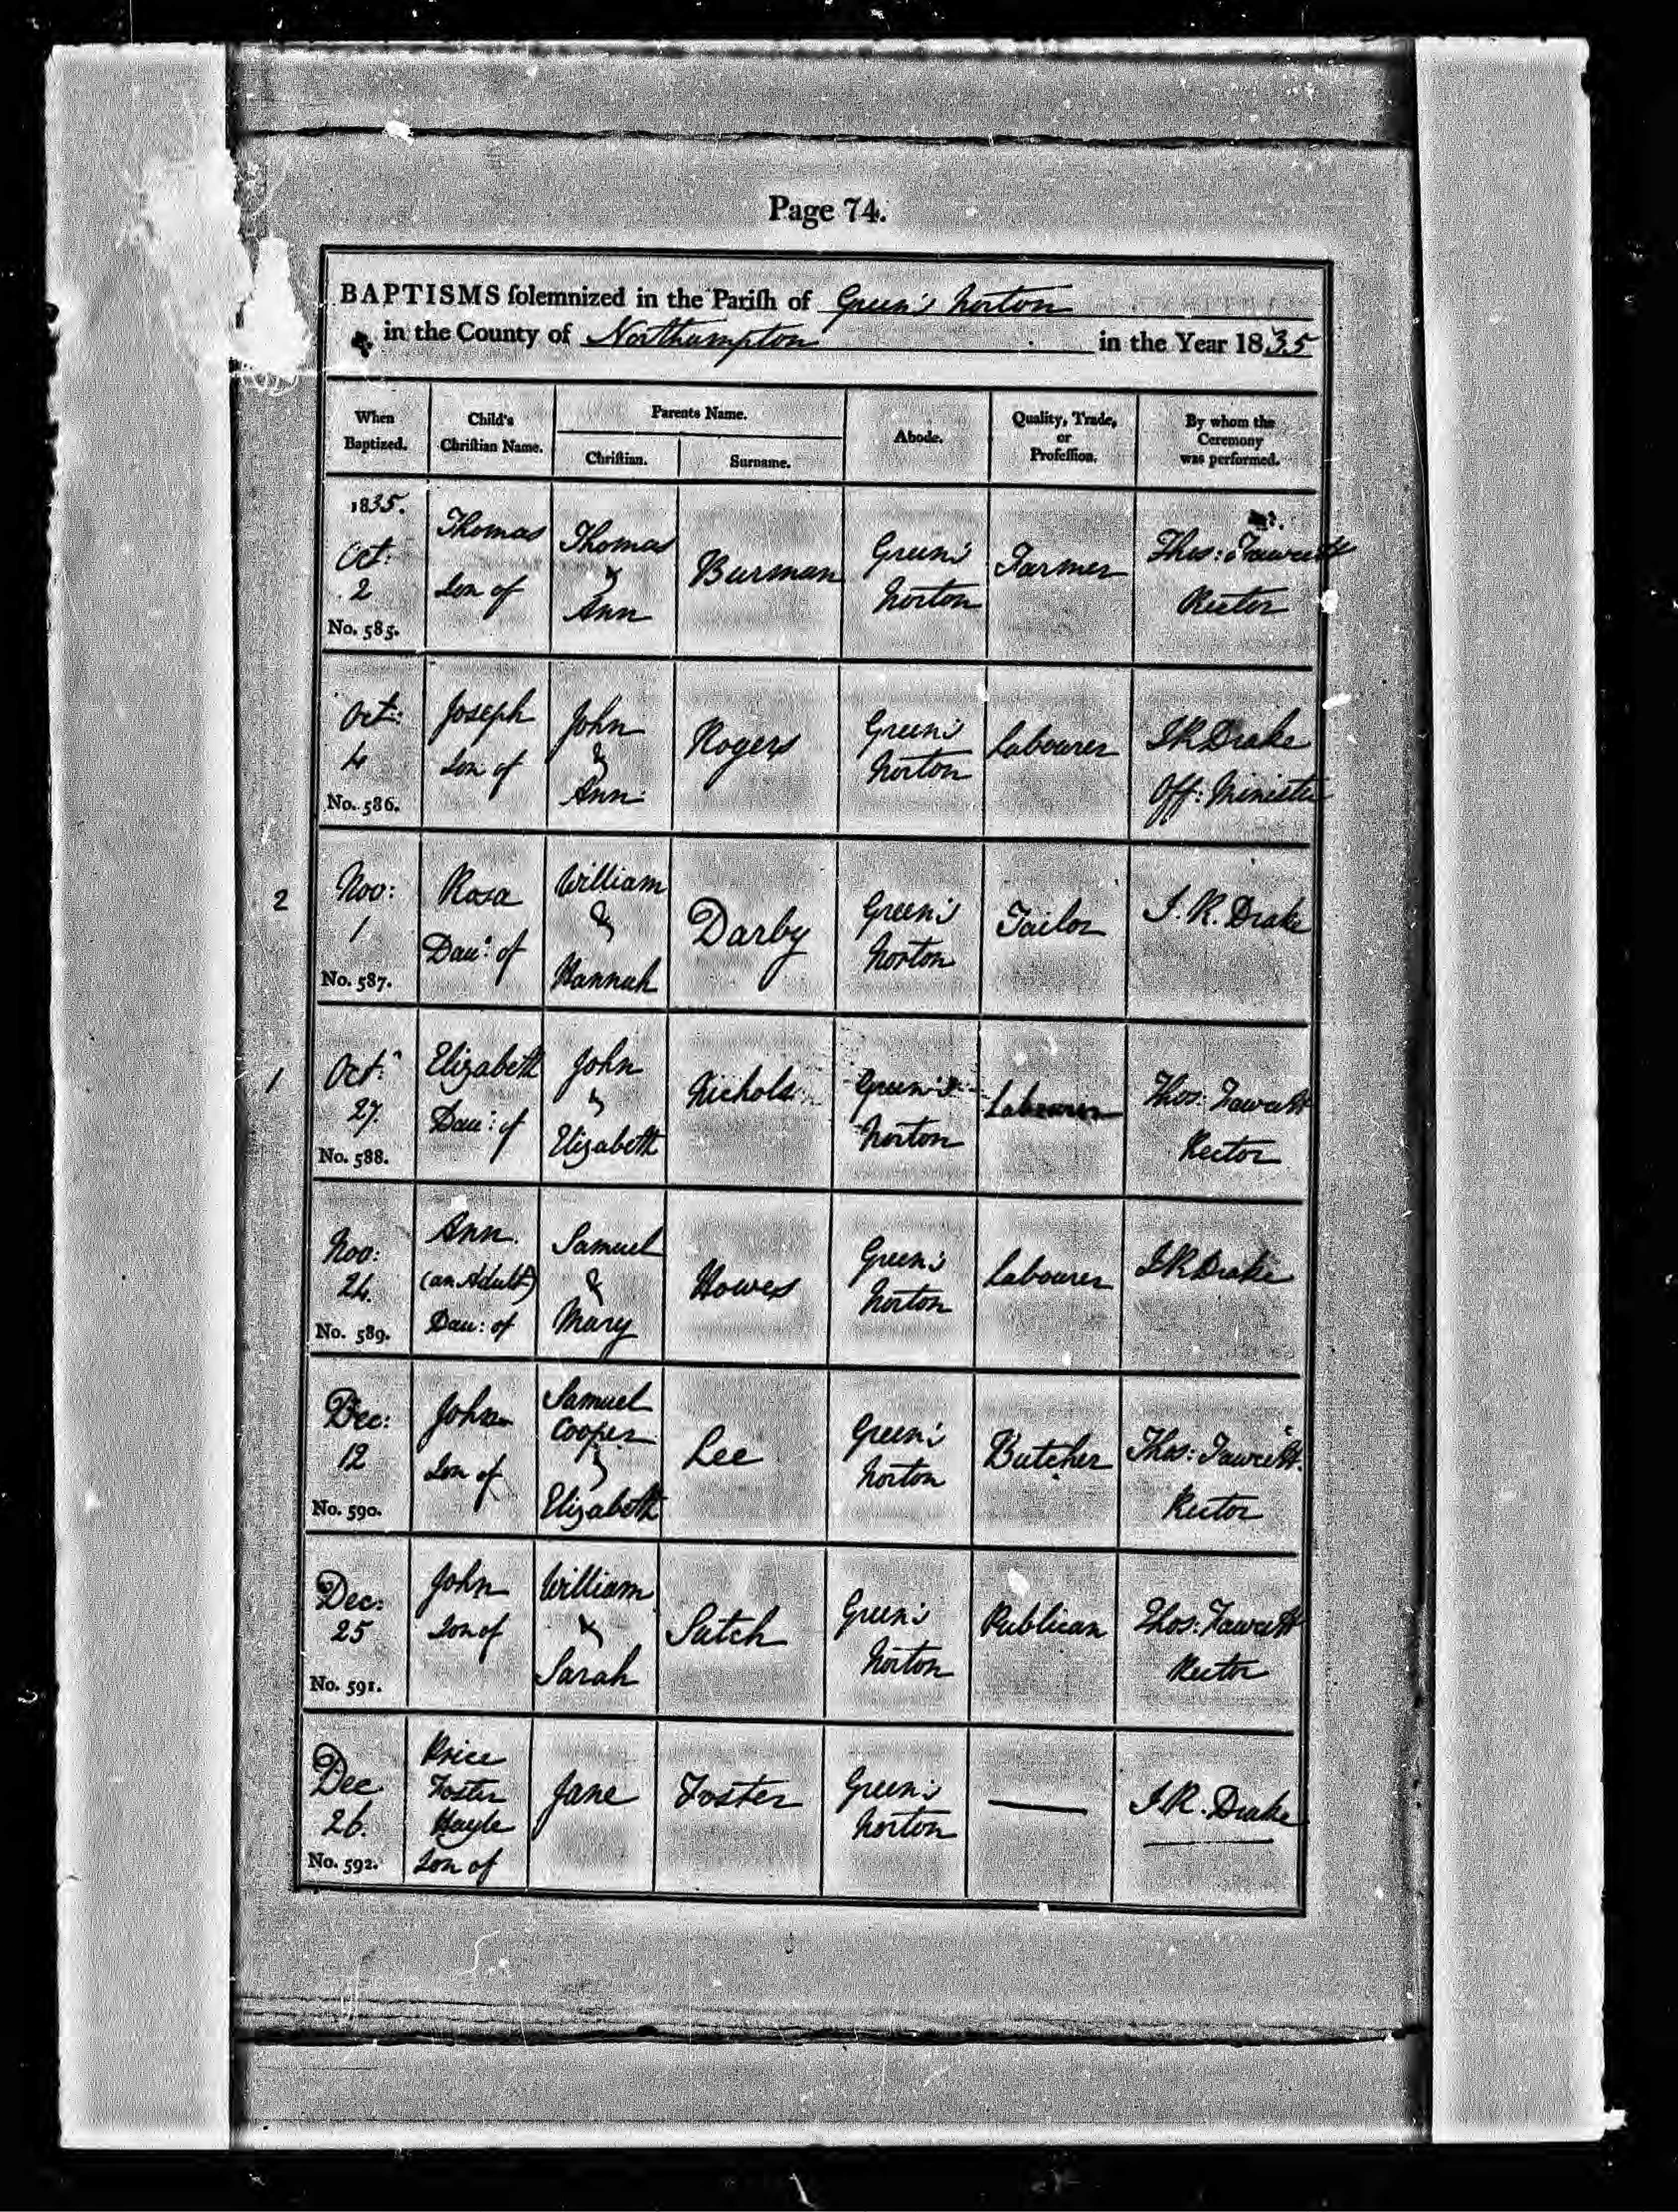 Page 74.
BAPTISMS solemnized in the Parish of Green's Norton
in the County of Northampton in the Year 1835
When Baptized.
Child's Christian Name.
Parents Name.
Christian.
Surname.
Abode.
Quality, Trade, or Profession.
By whom the Ceremony was performed.
1835.
Oct:
2
No. 585.
Thomas
Son of
Thomas
&
Ann
Burman
Green's
Norton
Farmer
Thos: Fawcett
Rector
Oct:
4
No. 586.
Joseph
Son of
John
&
Ann
Rogers
Green's
Norton
Labourer
I R Drake
Off: Minister
2
Nov:
1
No. 587.
Rosa
Dau: of
William
&
Hannah
Darby
Green's
Norton
Tailor
I. R. Drake
1
Oct:
27.
No. 588.
Elizabeth
Dau: of
John
&
Elizabeth
Nichols
Green's
Norton
Labourer
Thos: Fawcett
Rector
Nov:
24.
No. 589.
Ann
(an Adult)
Dau: of
Samuel
&
Mary
Howes
Green's
Norton
Labourer
I R Drake
Dec:
12
No. 590.
John
Son of
Samuel
Cooper
&
Elizabeth
Lee
Green's
Norton
Butcher
Thos: Fawcett.
Rector
Dec:
25
No. 591.
John
Son of
William
&
Sarah
Satch
Green's
Norton
Publican
Thos: Fawcett
Rector
Dec
26.
No. 592.
Price
Foster
Hayle
Son of
Jane
Foster
Green's
Norton
—
I. R. Drake